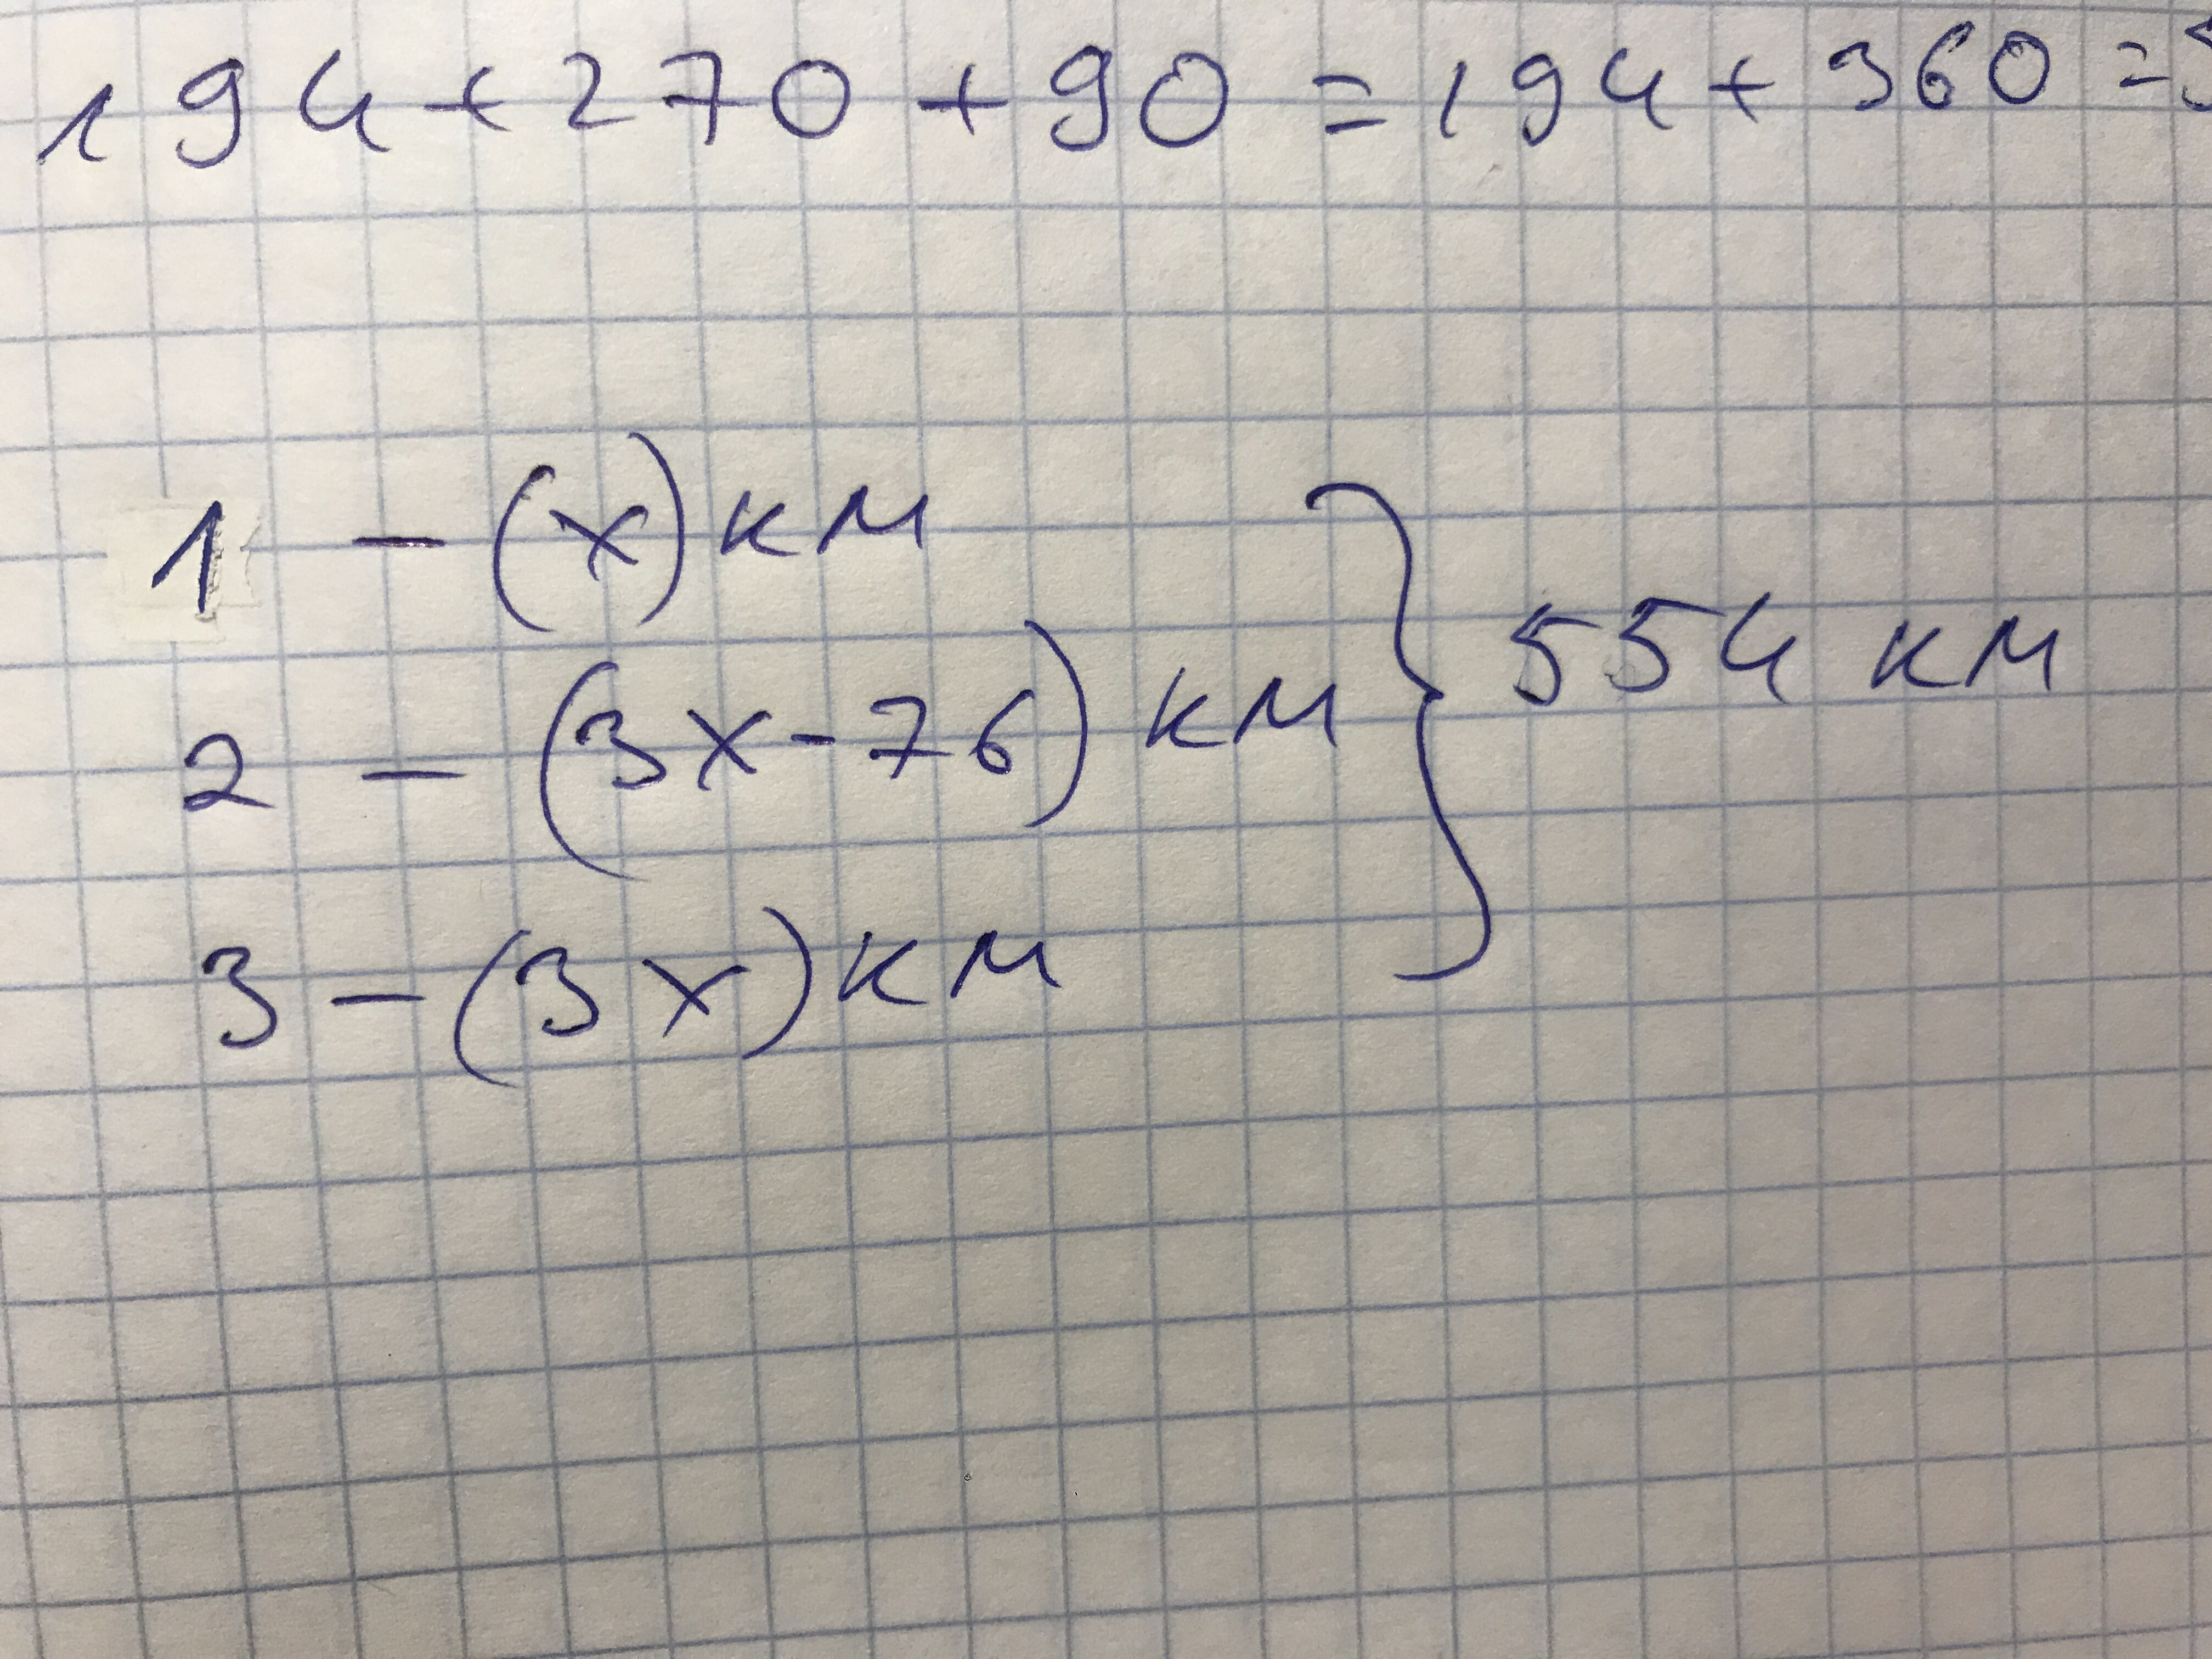 194+270+90=194+360=5
1 - (x) км
2 - (3x-76) км } 554 км
3 - (3x) км